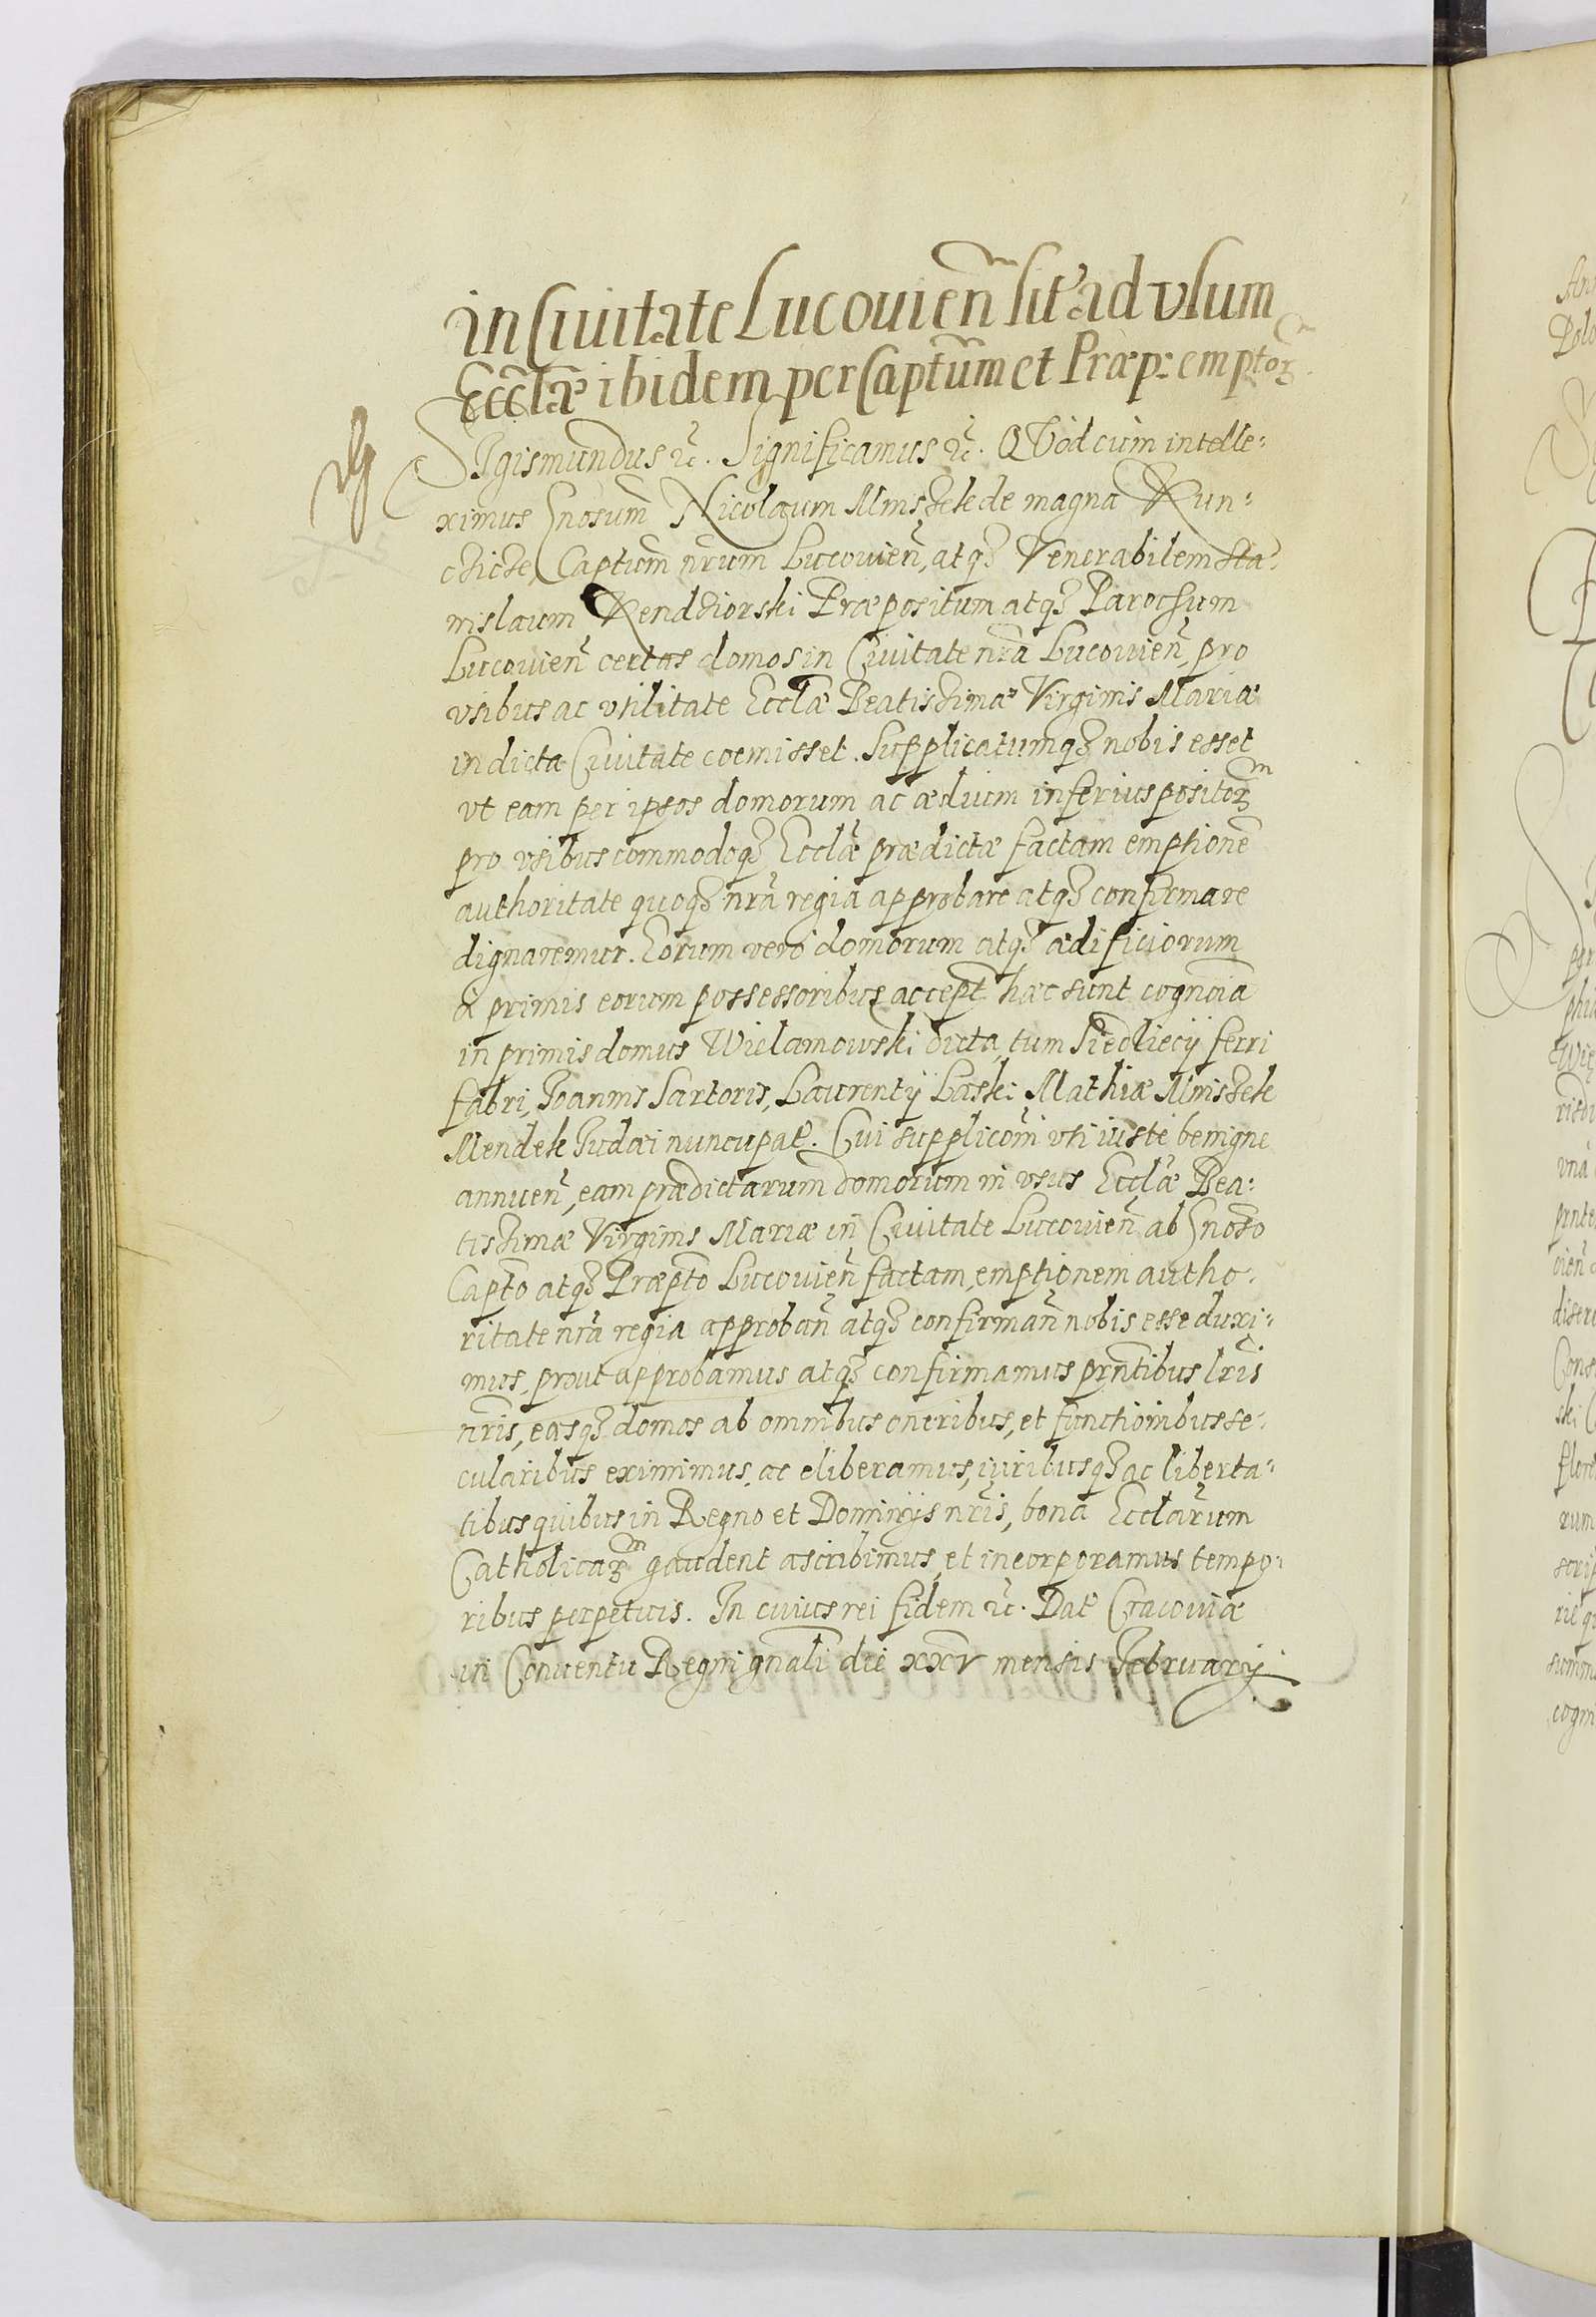 in Ciuitate Lucouieñ sit̃ ad vsum
Ecclæ ibidem per Captum̃ et Præp: emptoꝝ.
SIgismundus ꝛc̃. Significamus ꝛc̃. QVod cum intelle:
ximus Gnosum̃ Nicolaum Mniszek de magna Kun:
czicze, Captum̃ nrum̃ Lucouieñ, atqꝫ Venerabilem Sta:
nislaum Kendziorski Præpositum atqꝫ Parochum
Lucouieñ certas domos in Ciuitate nr̃a Lucouieñ, pro
vsibus ac vtilitate Eccl̃æ Beatissimæ Virginis Mariæ
in dicta Ciuitate coemisset. Supplicatumqꝫ nobis esset
vt eam per ipsos domorum ac ædium inferius positoꝝ
pro vsibus commodoqꝫ Eccl̃æ prædictæ factam emptionẽ
authoritate quoqꝫ nr̃a regia approbare atqꝫ confirmare
dignaremur. Eorum vero domorum atqꝫ ædificiorum
a primis eorum possessoribus accept̃ hæc sunt cognoĩa
in primis domus Wielamowski dicta, tum Siedliecij ferri
fabri, Joannis Sartoris, Laurentij Laski Mathiæ Mniszek
Mendek Judæi nuncupat̃. Cui supplicoñi vti iuste benigne
annueñ, eam prædictarum domorum in vsus Eccl̃æ Bea:
tissimæ Virginis Mariæ in Ciuitate Lucouieñ ab Gnoso
Capto atqꝫ Præpto Lucouieñ factam, emptionem autho:
ritate nr̃a regia approbañ atqꝫ confirmañ nobis esse duxi:
mus, prout approbamus atqꝫ confirmamus prñtibus lr̃is
nr̃is, easqꝫ domos ab omnibus oneribus, et functionibus se:
cularibus eximimus, ac eliberamus, iuribusqꝫ ac liberta:
tibus quibus in Regno et Dominijs nr̃is, bona Eccl̃arum
Catholicaꝝ gaudent ascribimus, et incorporamus tempo:
ribus perpetuis. In cuius rei fidem ꝛc̃. Dat̃ Cracouiæ
in Conuentu Regni gñali die xxv mensis Februarij